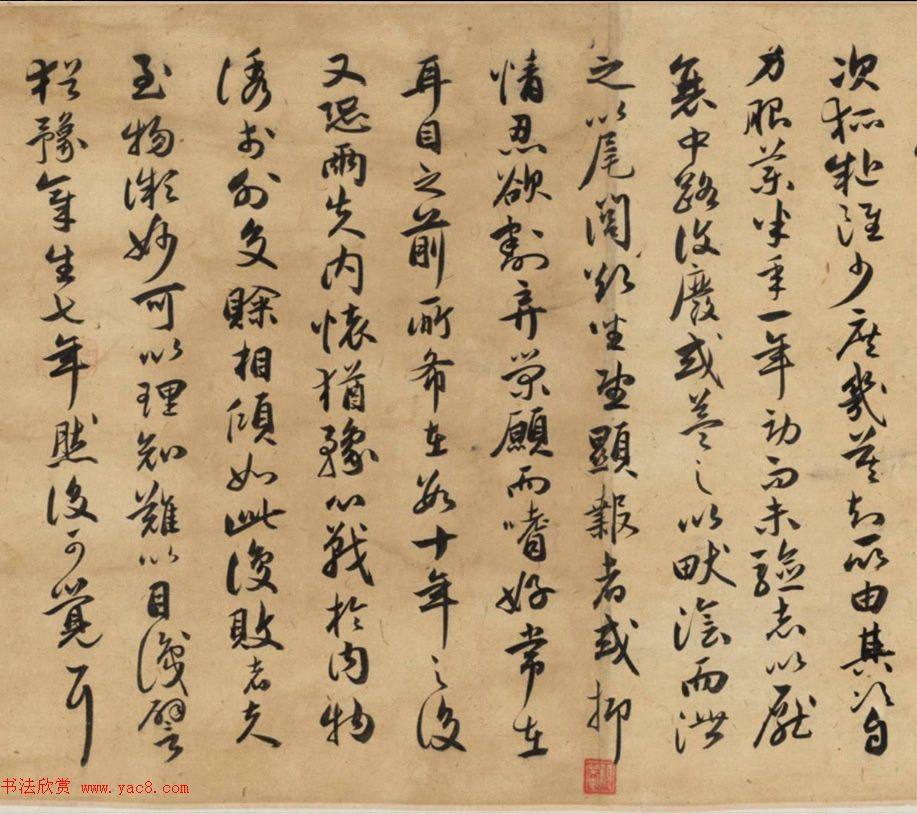 次狐疑雖少庶幾莫知所由其次自
力服藥半年一年勞而未驗志以厭
衰中路復廢或益之以畎澮而泄
之以尾閭欲坐望顯報者或抑
情忍欲割弃榮願而嗜好常在
耳目之前所希在數十年之後
又恐兩失內懷猶豫心戰於內物
誘於外交賒相傾如此復敗者夫
至物微妙可以理知難以目識譬
猶豫章生七年然後可覺耳
书法欣赏 www.yac8.com